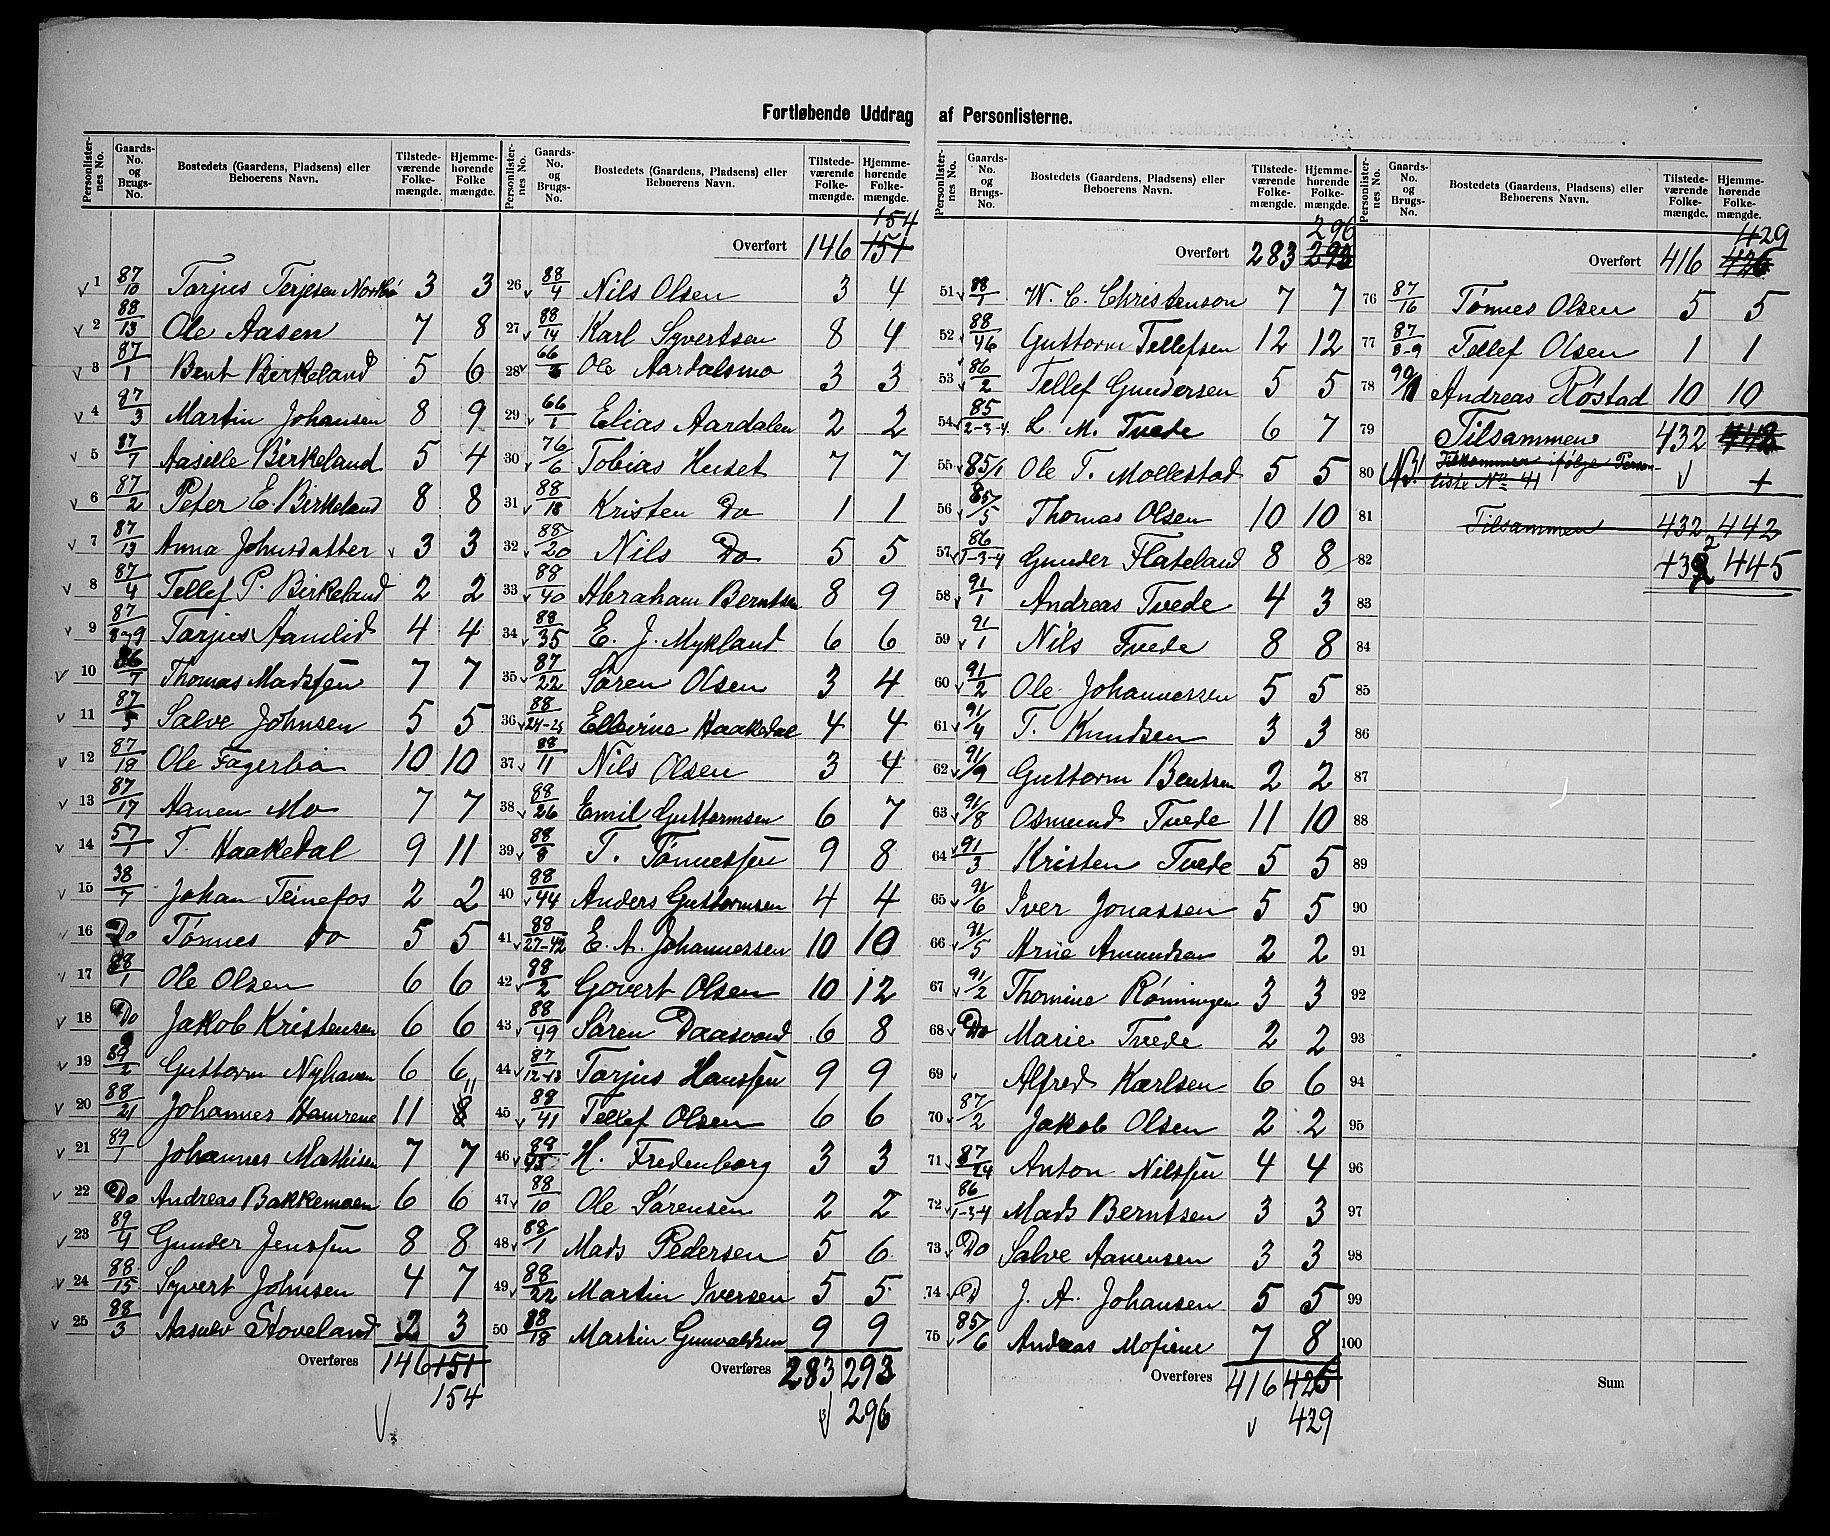 Fortløbende Uddrag af Personlisterne.
Personlister-nes No. | Gaards-No. og Brugs-No. | Bostedets (Gaardens, Pladsens) eller Beboerens Navn. | Tilstede-værende Folke-mængde. | Hjemme-hørende Folke mængde.
1 87/10 Tarjus Terjesen 3 3
2 88/13 Ole Aasen 7 8
3 87/1 Bent Birkeland 5 6
4 87/3 Martin Johansen 8 9
5 87/7 Aasille Birkeland 5 4
6 87/2 Peter E Birkeland 8 8
7 87/13 Anna Johnsdatter 3 3
8 87/4 Tellef P. Birkeland 2 2
9 87/8 og 9 Tarjus Aamlid 4 4
10 86/7 Thomas Madssen 7 7
11 87/5 Salve Johnsen 5 5
12 87/18 Ole Fagerbo 10 10
13 87/17 Aanen Mo 7 7
14 57/1 T. Haakedal 9 11
15 38/7 Johan Teinefos 2 2
16 Do Tønnes Do 5 5
17 88/1 Ole Olsen 6 6
18 Do Jakob Kristensen 6 6
19 89/2 Guttorm Nyhaven 6 6
20 88/21 Johannes Hamrene 11 8 11
21 89/1 Johannes Mathisen 7 7
22 Do Andreas Bakkemoen 6 6
23 89/4 Gunder Jenssen 8 8
24 88/15 Syvert Johnsen 4 7
25 88/3 Aasulv Stoveland 2 3
Overføres 146 151
154
Personlister-nes No. | Gaards-No. og Brugs-No. | Bostedets (Gaardens, Pladsens) eller Beboerens Navn. | Tilstede-værende Folke-mængde. | Hjemme-hørende Folke-mængde.
154
Overført 146 151
26 88/4 Nils Olsen 3 4
27 88/14 Karl Syvertsen 8 4
28 66 Ole Aardalsmo 3 3
29 66/1 Elias Aardalen 2 2
30 76/6 Tobias Huset 7 7
31 88/18 Kristen Do 1 1
32 88/20 Nils Do 5 5
33 88/40 Abraham Berntsen 8 9
34 88/35 E. J. Mykland 6 6
35 87/22 Søren Olsen 3 4
36 88/24-25 Ellevine Haakedal 4 4
37 88/11 Nils Olsen 3 4
38 88/26 Emil Guttormsen 6 7
39 88/8 T. Tønnessen 9 8
40 88/44 Anders Guttormsen 4 4
41 88/27-42 E. A. Johannessen 10 10
42 88/2 Govert Olsen 10 12
43 88/49 Søren Daasvand 6 8
44 87/12-13 Tarjus Hanssen 9 9
45 88/41 Tellef Olsen 6 6
46 88 H. Fredenborg 3 3
47 88/10 Ole Sørensen 2 2
48 88/1 Mads Pedersen 5 6
49 88/22 Martin Iversen 5 5
50 88/18 Martin Gunvaldsen 9 9
Overføres 283 293
296
Personlister-nes No. | Gaards-No. og Brugs-No. | Bostedets (Gaardens, Pladsens) eller Beboerens Navn. | Tilstede-værende Folke-mængde. | Hjemme-hørende Folke-mængde.
296
Overført 283 293
51 88/1 W. C. Christenson 7 7
52 88/46 Guttorm Tellefsen 12 12
53 86/2 Tellef Gundersen 5 5
54 85/2-3-4 L. M. Tvede 6 7
55 85/1 Ole T. Mollestad 5 5
56 85/5 Thomas Olsen 10 10
57 86/1-3-4 Gunder Flateland 8 8
58 91/1 Andreas Tvede 4 3
59 91/1 Nils Tvede 8 8
60 91/2 Ole Johannessen 5 5
61 91/4 T. Knudsen 3 3
62 91/9 Guttorm Bentsen 2 2
63 91/8 Osmund Tvede 11 10
64 91/3 Kristen Tvede 5 5
65 91/6 Iver Jonassen 5 5
66 91/5 Arne Amundsen 2 2
67 91/2 Thomine Rønningen 3 3
68 Do Marie Tvede 2 2
69 Alfred Karlsen 6 6
70 87/2 Jakob Olsen 2 2
71 87/24 Anton Nilssen 4 4
72 86/1-3-4 Mads Berntsen 3 3
73 Do Salve Aanensen 3 3
74 D J. A. Johansen 5 5
75 85/6 Andreas Mofiene 7 8
Overføres 416 425
429
Personlister-nes No. | Gaards-No. og Brugs-No. | Bostedets (Gaardens, Pladsens) eller Beboerens Navn. | Tilstede-værende Folke-mængde. | Hjemme-hørende Folke-mængde.
429
Overført 416 426
76 87/16 Tønnes Olsen 5 5
77 87/8-9 Tellef Olsen 1 1
78 90/1 Andreas Røstad 10 10
79 Tilsammen 432 442
80 NB! Tilkommer ifølge Person-
liste No 41
81 Tilsammen 432 442
82 432 445
83
84
85
86
87
88
89
90
91
92
93
94
95
96
97
98
99
100
Sum